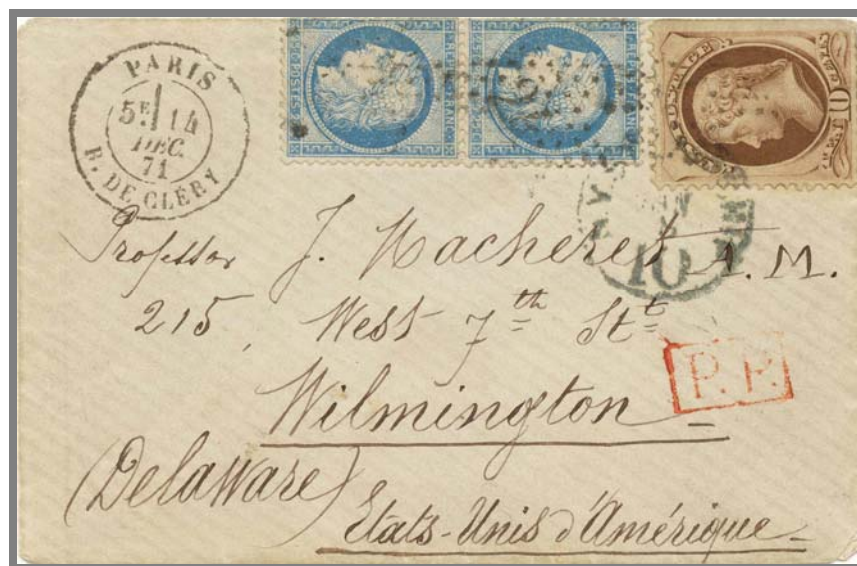 PARIS
5E 14
DEC.
71
R. DE CLÉRY
POSTES
10
Professor J. Macheret A. M.
215, West 7th St.
Wilmington
(Delaware)
États-Unis d'Amérique
10
P.P.